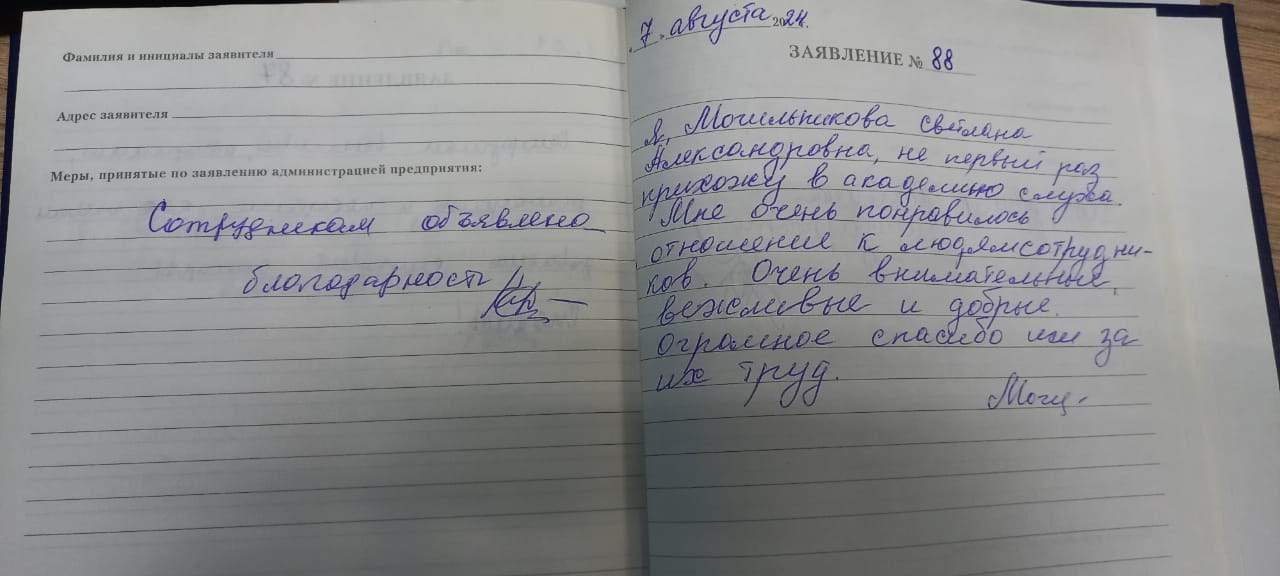 Фамилия и инициалы заявителя
Адрес заявителя
Меры, принятые по заявлению администрацией предприятия:
Сотрудникам объявлена
благодарность
7. августа 2024.
ЗАЯВЛЕНИЕ № 88
Я, Могильникова Светлана
Александровна, не первый раз
прихожу в академию слуха.
Мне очень понравилось
отношение к людямсотрудни-
ков. Очень внимательные,
вежливые и добрые.
огромное спасибо им за
их труд.